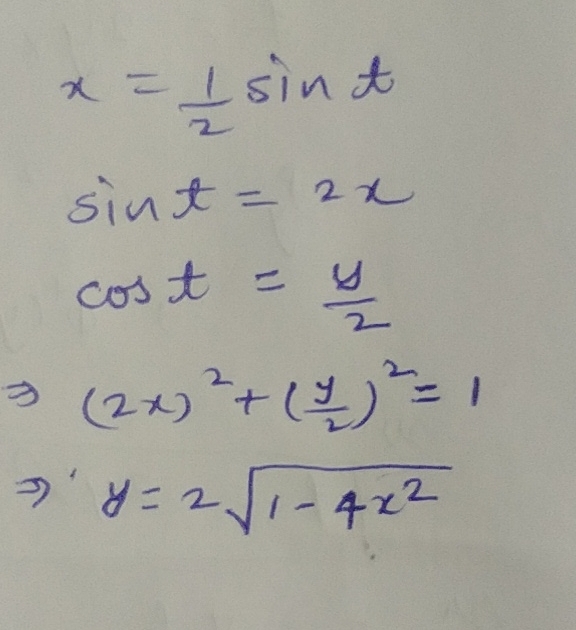 x = 1/2 sin t
sin t = 2x
cos t = y/2
⇒ (2x)² + (y/2)² = 1
⇒ y = 2√(1 - 4x²)